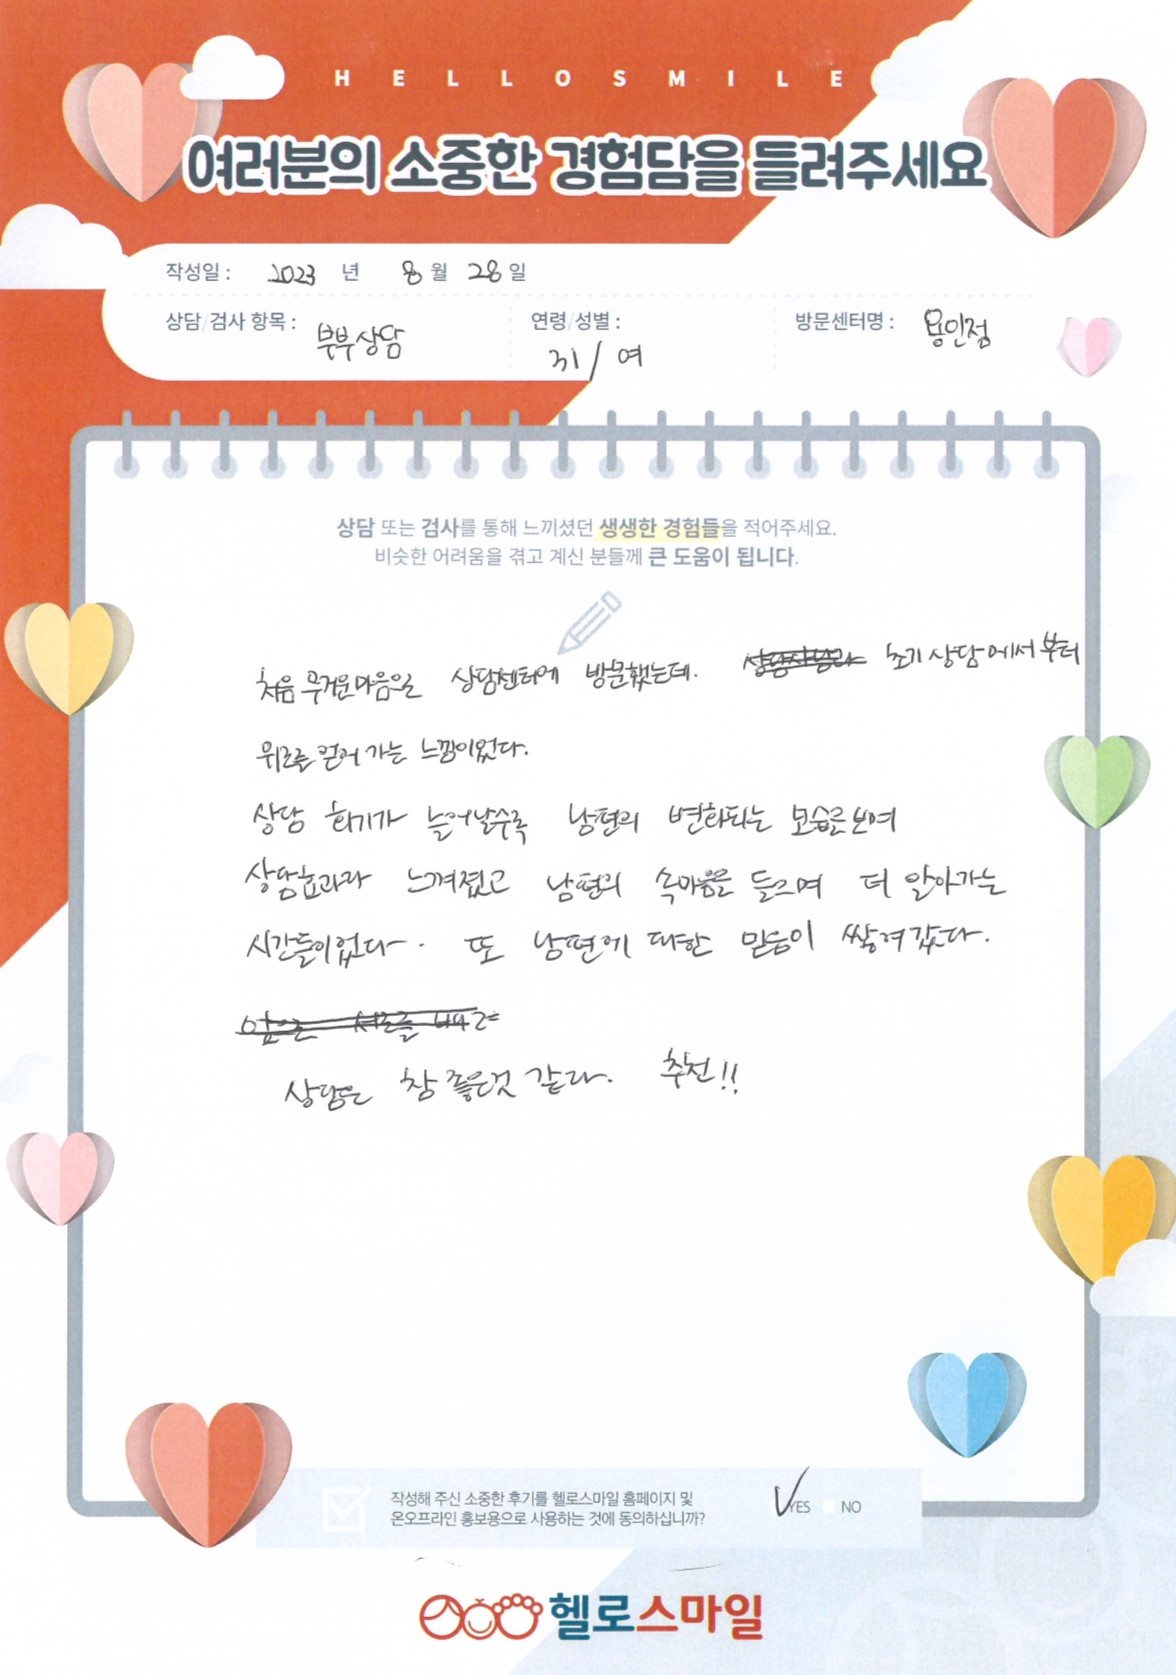 HELLOSMILE
여러분의 소중한 경험담을 들려주세요
작성일 : 2023 년 8 월 28 일
상담/검사 항목 : 부부상담 연령/성별 : 31 / 여 방문센터명 : 용인점
상담 또는 검사를 통해 느끼셨던 생생한 경험들을 적어주세요.
비슷한 어려움을 겪고 계신 분들께 큰 도움이 됩니다.
처음 무거운마음일 상담센터에 방문했는데. 초기 상담에서부터
위로를 얻어 가는 느낌이었다.
상담 회기가 늘어날수록 남편의 변화되는 모습을보며
상담효과라 느껴졌고 남편의 속마음을 들으며 더 알아가는
시간들이었다. 또 남편에 대한 믿음이 쌓여갔다.
앞으로 서로를
상담은 참 좋은것 같다. 추천!!
작성해 주신 소중한 후기를 헬로스마일 홈페이지 및
온오프라인 홍보용으로 사용하는 것에 동의하십니까? YES NO
헬로스마일